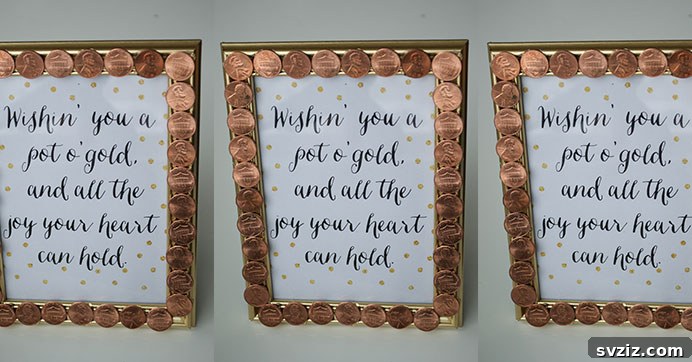 Wishin' you a
pot o'gold,
and all the
joy your heart
can hold.
Wishin' you a
pot o'gold,
and all the
joy your heart
can hold.
Wishin' you a
pot o'gold,
and all the
joy your heart
can hold.
svziz.com